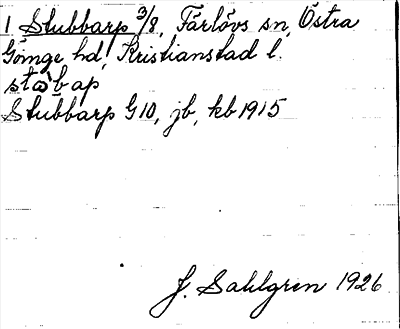 1 Stubbarp 3/8, Färlövs sn, Östra
Göinge hd, Kristianstad l.
stòb ap
Stubbarp G10, jb, kb 1915
J. Sahlgren 1926